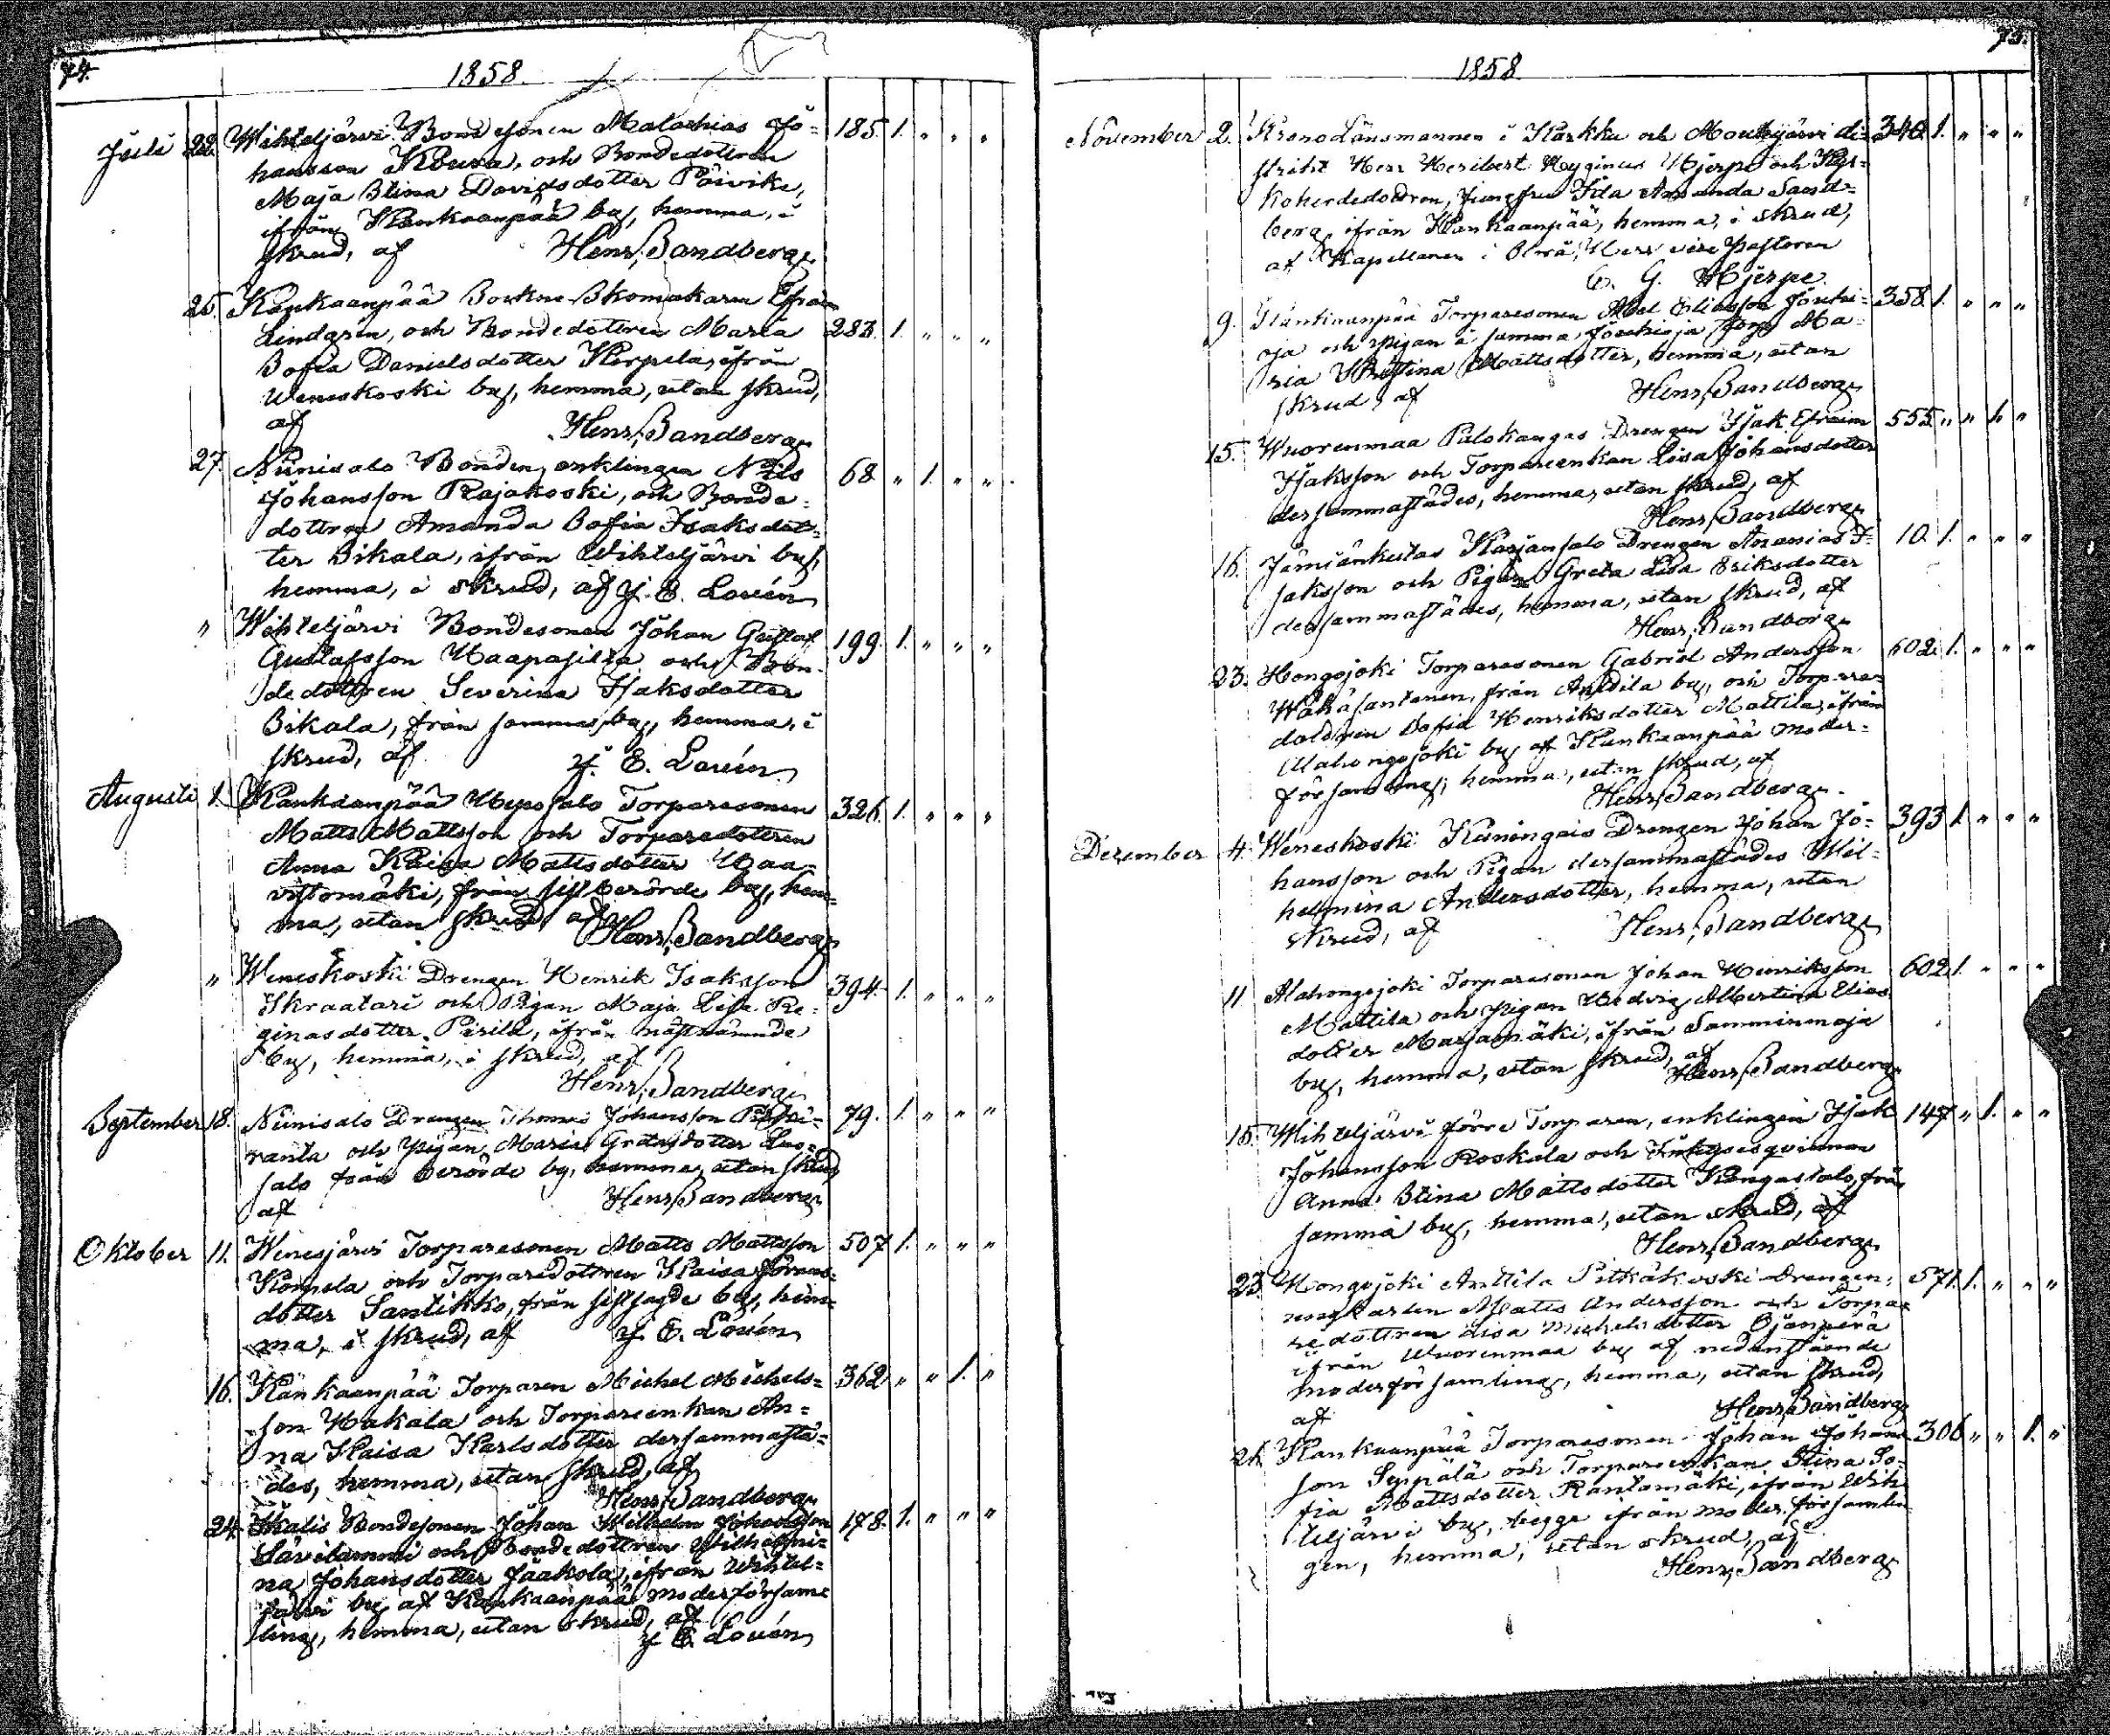 74.
1858.
Juli 22. Wihteljärvi Bondesonen Malachias Jo= 185. 1. " " "
hansson Koura, och Bondedottren
Maja Stina Davidsdotter Päivike,
ifrån Kankaanpää by, hemma, i
skrud, af Henr. Sandberg
25. Kankaanpää Sockne Skomakaren Efraim
Lindgren, och Bondedottren Maria 283. 1. " " "
Sofia Danielsdotter Korpela, ifrån
Weneskoski by, hemma, utan skrud,
af Henr. Sandberg
27. Niinisalo Bonden, enklingen Nils 68 " 1. " "
Johansson Rajakoski, och Bonde=
dottren Amanda Sofia Isaksdot=
ter Sikala, ifrån Wihteljärvi by,
hemma, i skrud, af J. E. Lovén
" Wihteljärvi Bondesonen Johan Gustaf 199. 1. " " "
Gustafsson Haapasilta och Bon=
dedottren Severina Isaksdotter
Sikala, från samma by, hemma, i
skrud, af J. E. Lovén
Augusti 1. Kankaanpää Heposalo Torparesonen 326. 1. " " "
Matts Mattsson och Torparedottren
Anna Kaisa Mattsdotter Haa=
vistomäki, från sistberörde by, hem=
ma, utan skrud af Henr. Sandberg
" Weneskoski Drengen Henrik Isaksson 394. 1. " " "
Skraatari och Pigan Maja Lisa Re=
ginasdotter Perilä, ifrån nästnämnde
by, hemma, i skrud, af
Henr. Sandberg
September 18. Niinisalo Drengen Thomas Johansson 79. 1. " " "
ranta och Pigan Maria Gretasdotter Luo=
salo från berörde by, hemma, utan skrud
af Henr. Sandberg
Oktober 11. Wenesjärvi Torparesonen Matts Mattsson 507 1. " " "
Korpela och Torparedottren Kaisa
dotter Santikko, från sistsagde by, hem=
ma, i skrud, af J. E. Lovén
16. Kankaanpää Torparen Michel Michels= 362 " " 1. "
son Hakala och Torpareenkan An=
na Kaisa Karlsdotter dersammastä=
des, hemma, utan skrud, af
Henr. Sandberg
24. Skalis Bondesonen Johan Wilhelm Johansson 178. 1. " " "
Särvilammi och Bondedottren Wilhelmi=
na Johansdotter Jaakola, ifrån Wihtel=
järvi by af Kankaanpää moderförsam=
ling, hemma, utan skrud, af
J. E. Lovén
75.
1858
November 2. Kronolänsmannen i Karkku och Mouhijärvi di= 340. 1. " " "
strikt Herr Heribert Hyginus Hjerpe och Kyr=
koherdedottren, Jungfru Ida Amanda Sand=
berg, ifrån Kankaanpää, hemma, i skrud,
af Kapellanen i Herr vice Pastoren
C. G. Hjerpe
9. Kankaanpää Torparesonen Abel Eliasson Jouhi= 358. 1. " " "
oja och Pigan å samma Torp Ma=
ria Christina Mattsdotter, hemma, utan
skrud, af Henr. Sandberg
15. Wuorenmaa Palokangas Drengen Isak Efraim 555. " " 1. "
Isaksson och Torpareenkan Lisa Johansdotter
dersammastädes, hemma, utan skrud, af
Henr. Sandberg
16. Jämiänkeitas Karjansalo Drengen Ananias I= 10. 1. " " "
saksson och Pigan Greta Lisa Eriksdotter
dersammastädes, hemma, utan skrud, af
Henr. Sandberg
23. Hongojoki Torparesonen Gabriel Andersson 602. 1. " " "
Wähäsantanen, från Anttila by, och Torpare=
dottren Sofia Henriksdotter Mattila, ifrån
Alahongojoki by af Kankaanpää moder=
församling, hemma, utan skrud, af
Henr. Sandberg
Dezember 4. Weneskoski Kuningais Drengen Johan Jo= 393 1. " " "
hansson och Pigan dersammastädes Wil=
helmina Andersdotter, hemma, utan
skrud, af Henr. Sandberg
11. Alahongojoki Torparesonen Johan Henriksson 602. 1. " " "
Mattila och Pigan Hedvig Albertina Elias
dotter Marjamäki, ifrån Samminmaja
by, hemma, utan skrud, af
Henr. Sandberg
15. Wihteljärvi förre Torparen, enklingen Isak 147 " 1. " "
Johansson Koskela och Inhysesqvinnan
Anna Stina Mattsdotter Kangassalo, från
samma by, hemma, utan skrud, af
Henr. Sandberg
23. Hongojoki Anttila Pitkäkoski Drengen, 571. 1. " " "
ungkarlen Matts Andersson och Torpa=
redottren Lisa Michelsdotter Ojanperä
ifrån Wuorenmaa by af nedanstående
moderförsamling, hemma, utan skrud,
af Henr. Sandberg
26. Kankaanpää Torparesonen Johan Johans 306 " " 1. "
son Seppälä och Torpareenkan Stina So=
fia Mattsdotter Rantamäki, ifrån Wih
teljärvi by, begge ifrån moderförsamlin
gen, hemma, utan skrud, af
Henr. Sandberg